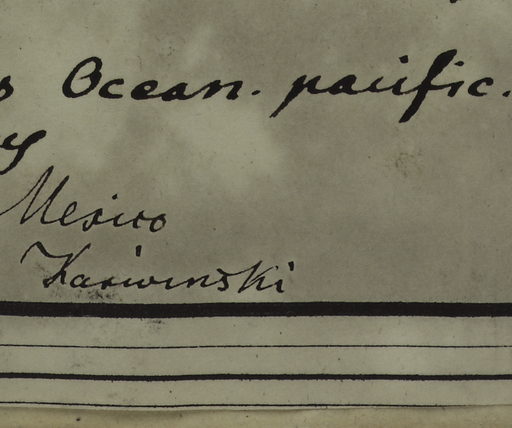 Ocean. pacific.
Mexico
Karwinski